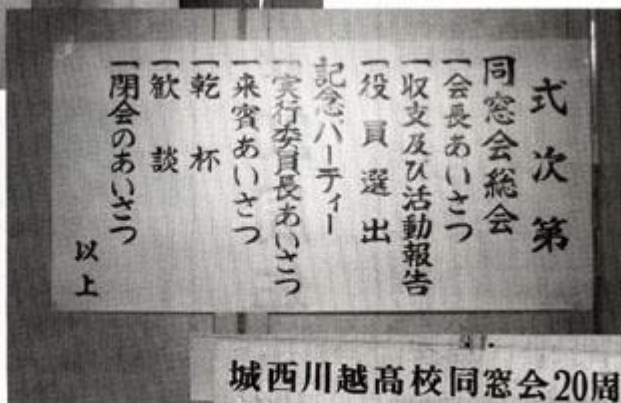 式次第
同窓会総会
一会長あいさつ
一収支及び活動報告
一役員選出
記念パーティー
一実行委員長あいさつ
一来賓あいさつ
一乾杯
一歓談
一閉会のあいさつ
以上
城西川越高校同窓会20周